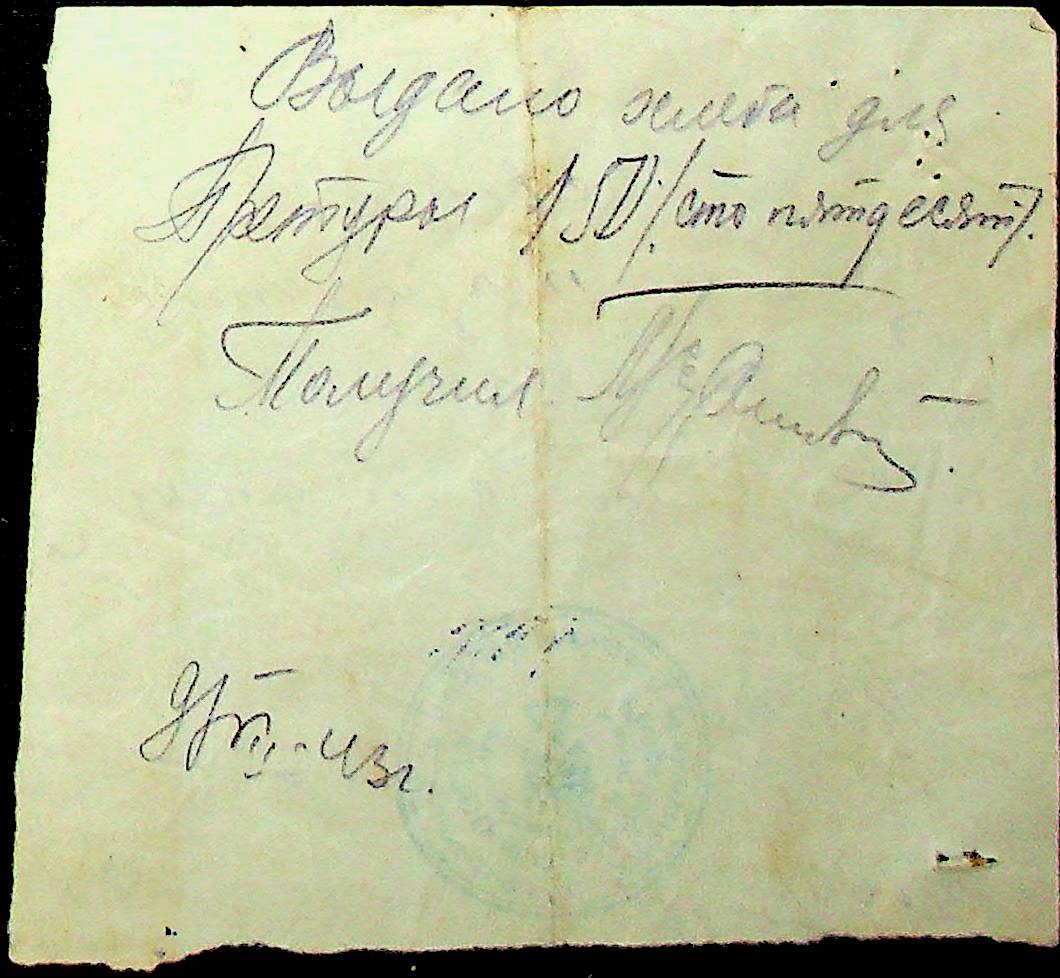 Выдано хлеба для
Претуры 150/сто пятдесят/.
Получил
43г.